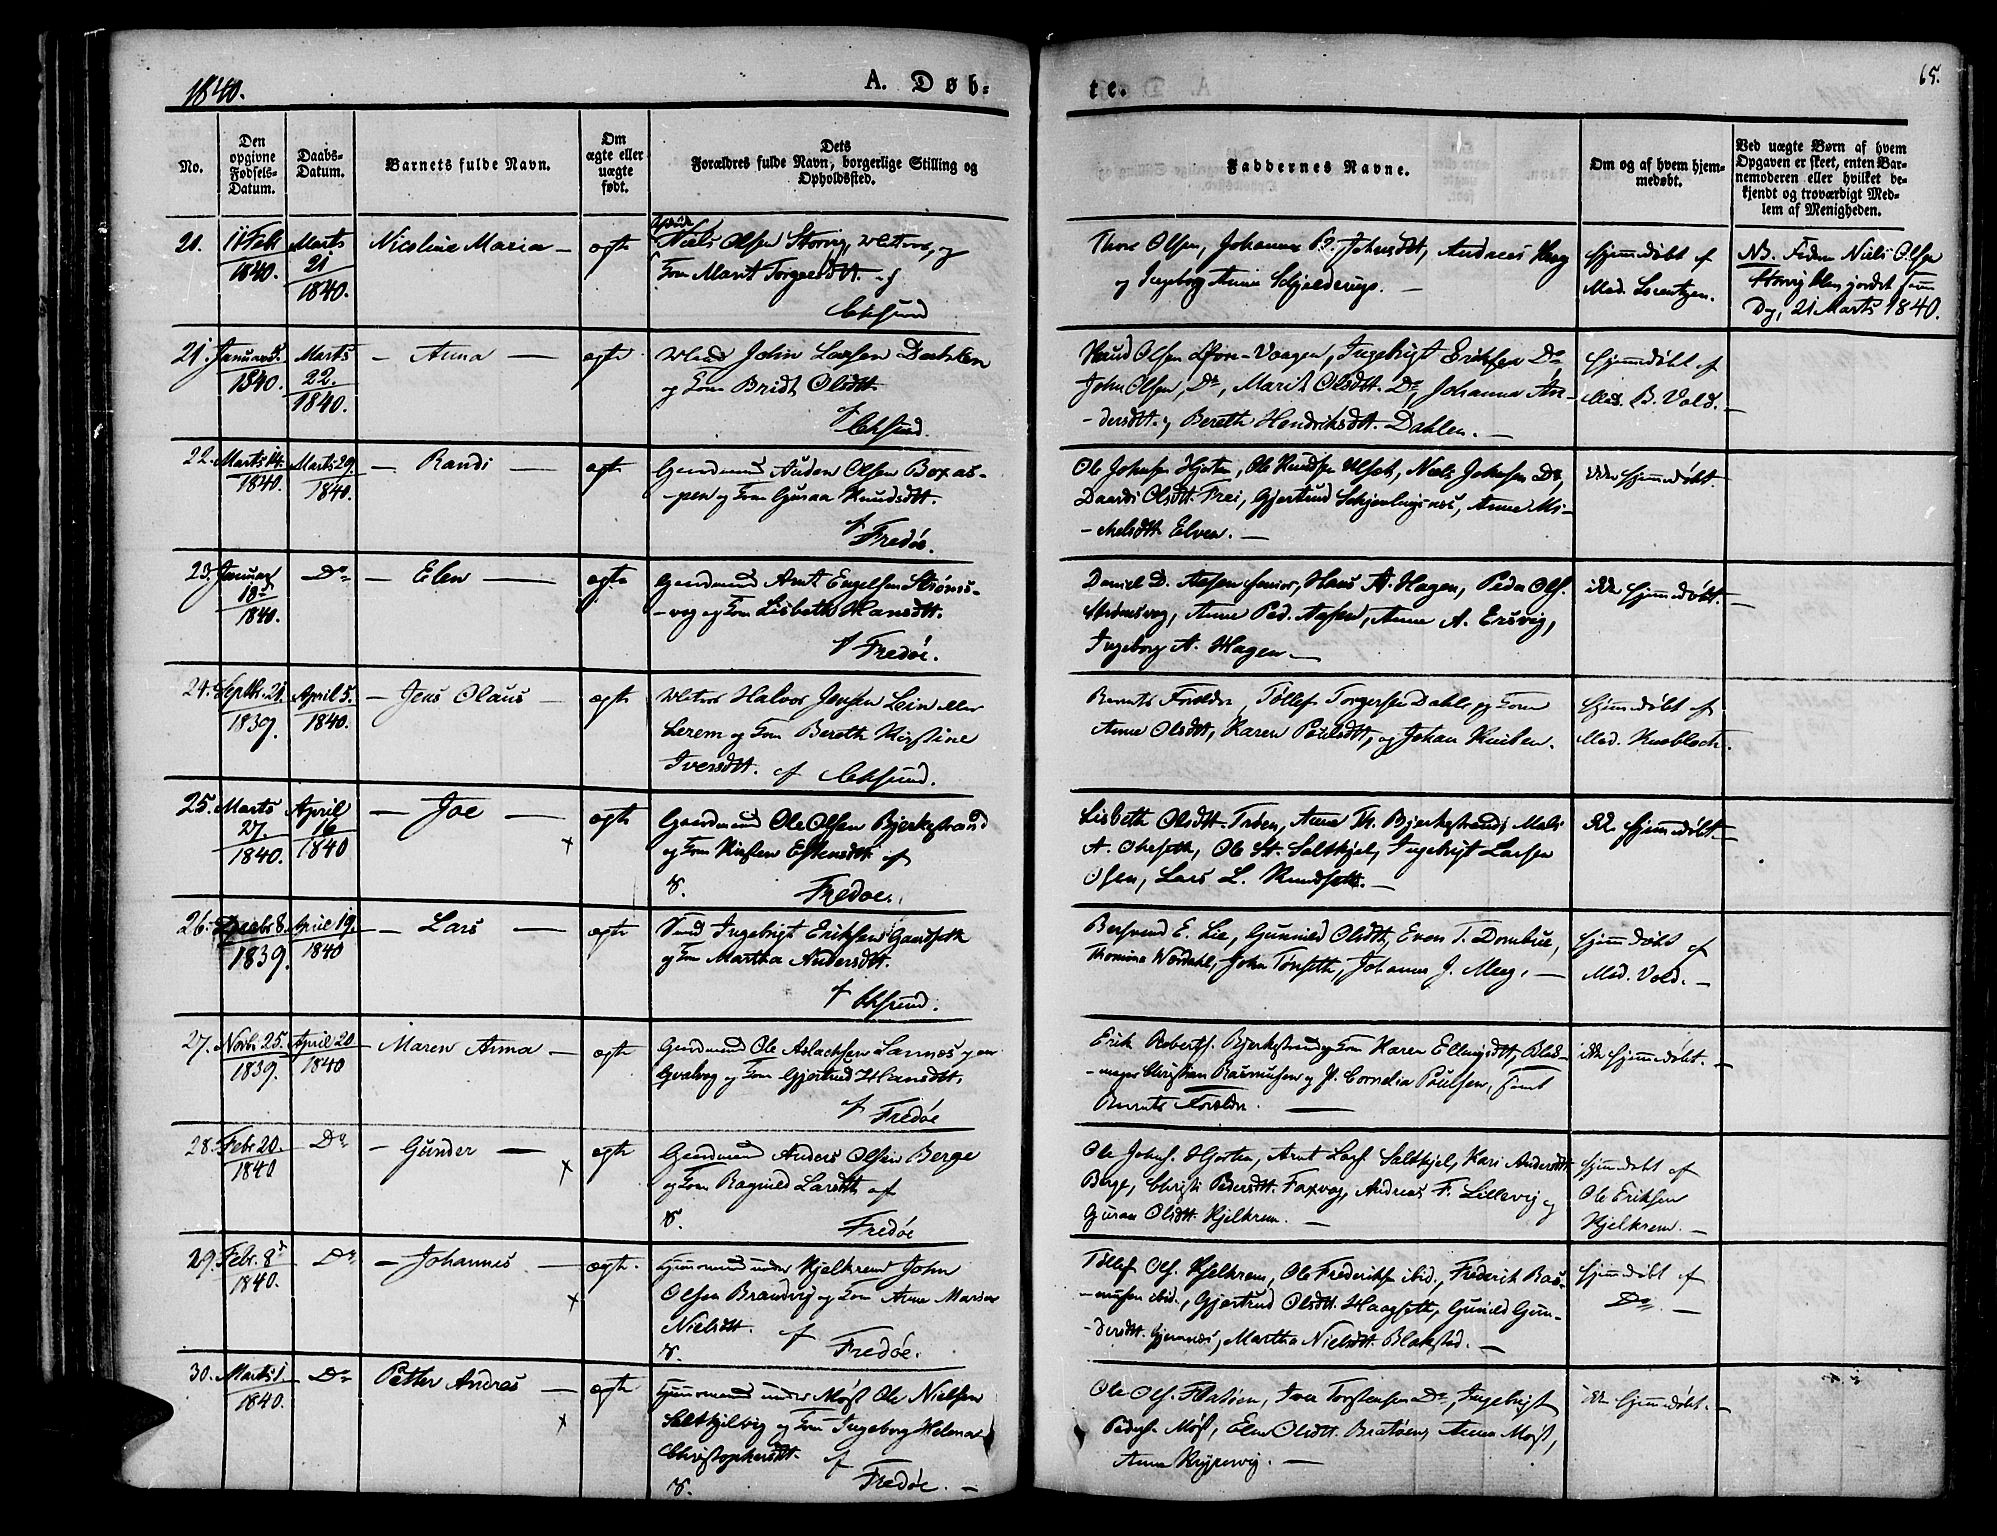 1840.
A. Døb-
te.
65.
No.
Den opgivne Fødsels-Datum.
Daabs-Datum.
Barnets fulde Navn.
Om ægte eller uægte født.
Dets
Forældres fulde Navn, borgerlige Stilling og
Opholdssted.
Faddernes Navne.
Om og af hvem hjem-
medøbt.
Ved uægte Børn af hvem
Opgaven er skeet, enten Bar-
nemoderen eller hvilket be-
kjendt og troværdigt Med-
lem af Menigheden.
20. Febr 1840. Marts 21 1840. Nicoline Maria - ægte
Niels Olsen Storvig,
Marit
Thore Olsen, Johanna Johnsdtt, Andreas
og Ingeborg Anna Schjelderups. -
hjemmedøbt af
Mad. Lorentzen.
NB. Faderen Niels Olsen
Storvig
Dag, 21 Marts 1840.
21. Januar 1840. Marts 22. 1840. - Anna - ægte
John Larsen Dahlen
og Kone Bridt Olsdtt.
Knud Olsen Øvre-Vaagen, Ingebrigt Eriksen Do
John Olsen, Do, Marit Olsdtt. Do, Johanna An-
-dersdtt. og Bereth Hendriksdtt. Dahlen. -
hjemmedøbt af
Mad. B. Vold. -
22. Marts 14. 1840. Marts 29. 1840. - Randi - ægte
Gaardmand Auden Olsen Boxas-
-pen og Kone Guraa Knudsdtt.
af Fredøe.
Ole Johnsen Hjorten, Ole Knudsen Ulset, Niels Johnsen Do,
Olsdtt. Frei, Gjertrud Anne Mi-
-chelsdtt. Elven. -
ikke hjemmedøbt.
23. Januar 18de 1840. Do - Elen - ægte
Gaardmand Arnt Engelsen Strøms-
-vog og Kone Lisbeth Hansdtt.
af Fredøe.
Daniel D. Aasen senior, Hans A. Hagen, Peder Ols.
Strømsvog, Anne Ped. Aasen, Anne A. Ersvig,
Ingeborg A. Hagen -
ikke hjemmedøbt. -
24. Septbr. 21. 1839. April 5. 1840. - Jens Olaus - ægte
Halvor Jensen Lein eller
Lerem og Kone Bereth Kirstine
Iversdtt. af
Barnets Forældre, Tøllef Torgersen Dahle og Kone
Anne Olsdtt, Karen Poulsdtt, og Johan Knudsen.
hjemmedøbt af
Mad. Knobloch.
25. Marts 27. 1840. April 16 1840 - Joe - ægte
x
Gaardmand Ole Olsen Bjerkestrand
og Kone Kirsten Estensdtt. af
Fredøe.
Lisbeth Olsdtt. Trøen, Anne Bjerkestrand, Mali
A. Ole St. Saltkjel, Ingebrigt Larsen
Osen, Lars L. Knudseth. -
ikke hjemmedøbt. -
26. Decbr. 8. 1839. April 19. 1840 - Lars - ægte
Ingebrigt Eriksen Gaardseth
og Kone Martha Andersdtt.
Bersvend E. Lie, Gunnild Olsdtt, Even T.
Thomina Nordahl, John Tønseth, Johannes J. Meeg. -
hjemmedøbt af
Mad. Vold. -
27. Novbr. 25. 1839. April 20 1840 - Maren Anna - ægte
Gaardmand Ole Aslachsen
Qvalvog og Kone Gjertrud Hansdtt.
af Fredøe
Erik Roberts. Bjerkestrand og Kone Karen Ellingsdtt,
Christian Rasmussen og Cornelia Poulsen, samt
Barnets Forældre. -
ikke hjemmedøbt. -
28. Febr. 20. 1840 Do - Gunder - ægte
x
Gaardmand Anders Olsen Berge
og Kone Ragnild Larsdtt. af
Fredøe
Ole Johns. Hjorten, Arnt Lars. Saltkjel, Kari Andersdtt
Berge, Christi Pedersdtt. Foxvog, Andreas F. Lillevig og
Guraa Olsdtt. Kjelkrem. -
hjemmedøbt af
Ole Eriksen
Kjelkrem. -
29. Febr. 8de 1840. Do - Johannes. - ægte.
x
Huusmand under Kjelkrem John
Olsen Brandvig og Kone Anne Maria
Nielsdtt. af
Fredøe.
Tøllef Ols. Kjelkrem, Ole Frederiks. ibid., Frederik Ras-
-mussen ibid., Gjertrud Olsdtt. Haagseth, Gunild Gun-
-dersdtt. Gjemnæs, Martha Nielsdtt. Blakstad. -
hjemmedøbt af
Do. -
30. Marts 1. 1840. Do Petter Andreas - ægte
x
Huusmand under Møst Ole Nielsen
Saltkjelvig og Kone Ingeborg Helena
Christophersdtt. af
Fredøe. -
Ole Ols. Flatøen, Iver Torstensen Do, Ingebrigt
Peders. Møst, Elen Olsdtt. Bratøen, Anne Møst,
Anne -
ikke hjemmedøbt. -